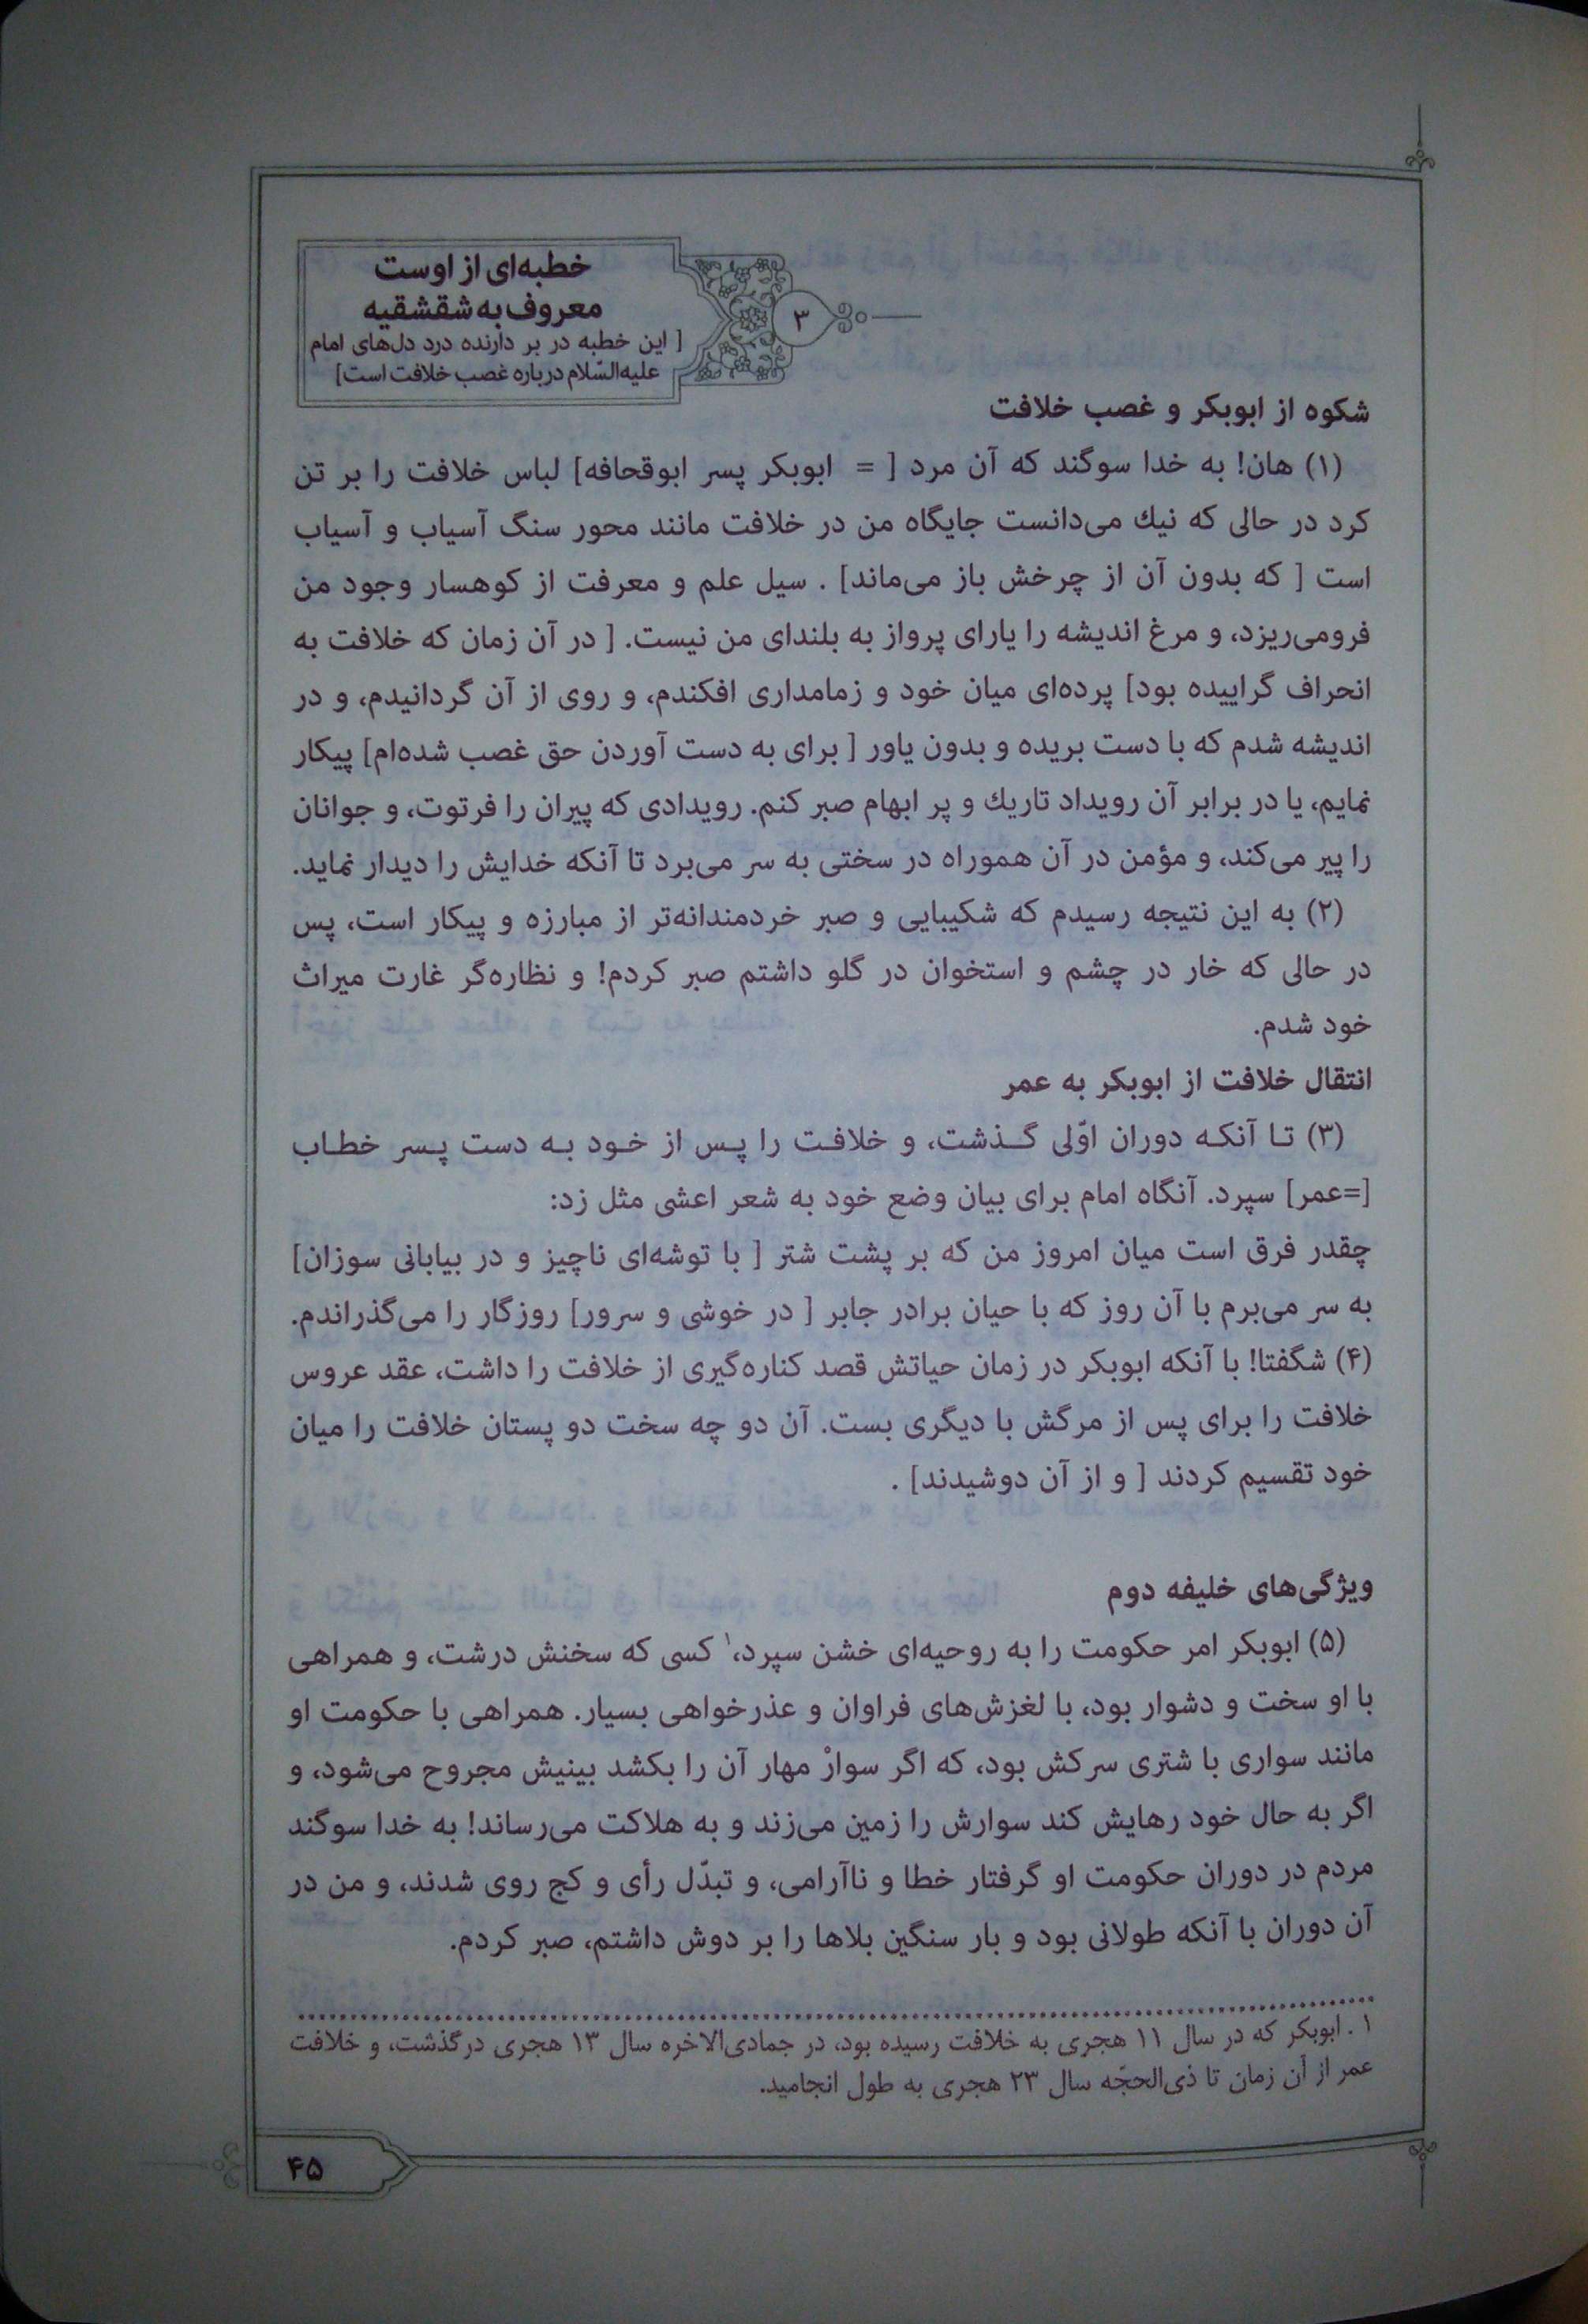 ۳
خطبه‌ای از اوست
معروف به شقشقیه
[ این خطبه در بر دارنده درد دل‌های امام
علیه‌السّلام درباره غصب خلافت است]
شکوه از ابوبکر و غصب خلافت
(۱) هان! به خدا سوگند که آن مرد [ = ابوبکر پسر ابوقحافه] لباس خلافت را بر تن
کرد در حالی که نیك می‌دانست جایگاه من در خلافت مانند محور سنگ آسیاب و آسیاب
است [ که بدون آن از چرخش باز می‌ماند] . سیل علم و معرفت از کوهسار وجود من
فرومی‌ریزد، و مرغ اندیشه را یارای پرواز به بلندای من نیست. [ در آن زمان که خلافت به
انحراف گراییده بود] پرده‌ای میان خود و زمامداری افکندم، و روی از آن گردانیدم، و در
اندیشه شدم که با دست بریده و بدون یاور [ برای به دست آوردن حق غصب شده‌ام] پیکار
نمایم، یا در برابر آن رویداد تاریك و پر ابهام صبر کنم. رویدادی که پیران را فرتوت، و جوانان
را پیر می‌کند، و مؤمن در آن هموراه در سختی به سر می‌برد تا آنکه خدایش را دیدار نماید.
(۲) به این نتیجه رسیدم که شکیبایی و صبر خردمندانه‌تر از مبارزه و پیکار است، پس
در حالی که خار در چشم و استخوان در گلو داشتم صبر کردم! و نظاره‌گر غارت میراث
خود شدم.
انتقال خلافت از ابوبکر به عمر
(۳) تا آنکه دوران اوّلی گذشت، و خلافت را پس از خود به دست پسر خطاب
[=عمر] سپرد. آنگاه امام برای بیان وضع خود به شعر اعشی مثل زد:
چقدر فرق است میان امروز من که بر پشت شتر [ با توشه‌ای ناچیز و در بیابانی سوزان]
به سر می‌برم با آن روز که با حیان برادر جابر [ در خوشی و سرور] روزگار را می‌گذراندم.
(۴) شگفتا! با آنکه ابوبکر در زمان حیاتش قصد کناره‌گیری از خلافت را داشت، عقد عروس
خلافت را برای پس از مرگش با دیگری بست. آن دو چه سخت دو پستان خلافت را میان
خود تقسیم کردند [ و از آن دوشیدند] .
ویژگی‌های خلیفه دوم
(۵) ابوبکر امر حکومت را به روحیه‌ای خشن سپرد،۱ کسی که سخنش درشت، و همراهی
با او سخت و دشوار بود، با لغزش‌های فراوان و عذرخواهی بسیار. همراهی با حکومت او
مانند سواری با شتری سرکش بود، که اگر سوارْ مهار آن را بکشد بینیش مجروح می‌شود، و
اگر به حال خود رهایش کند سوارش را زمین می‌زند و به هلاکت می‌رساند! به خدا سوگند
مردم در دوران حکومت او گرفتار خطا و ناآرامی، و تبدّل رأی و کج روی شدند، و من در
آن دوران با آنکه طولانی بود و بار سنگین بلاها را بر دوش داشتم، صبر کردم.
۱ . ابوبکر که در سال ۱۱ هجری به خلافت رسیده بود، در جمادی‌الاخره سال ۱۳ هجری درگذشت، و خلافت
عمر از آن زمان تا ذی‌الحجّه سال ۲۳ هجری به طول انجامید.
۴۵